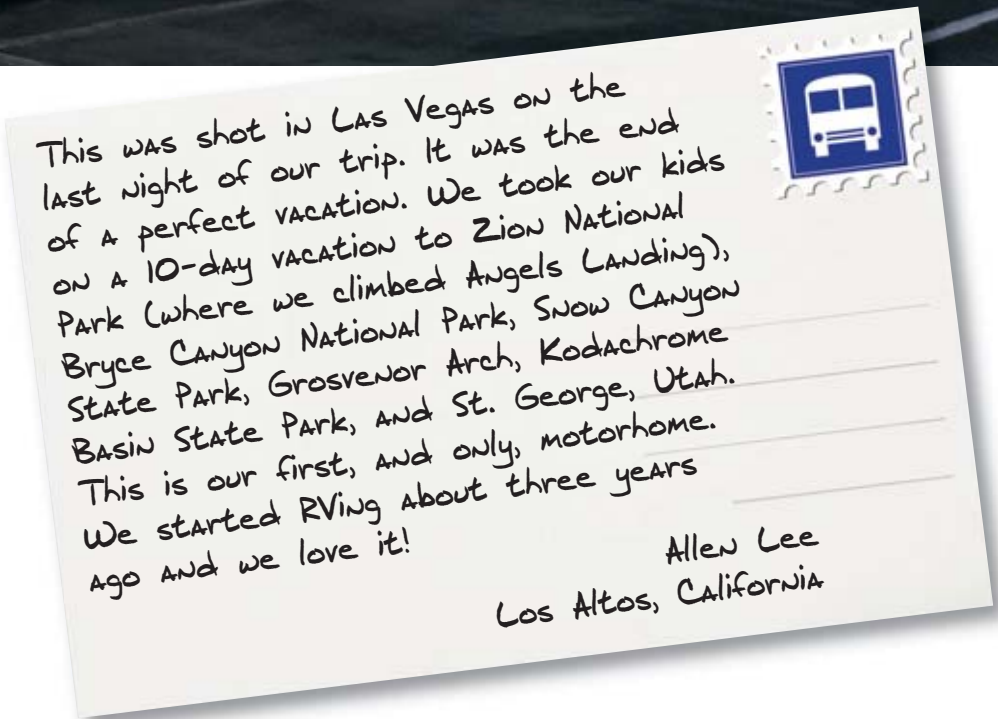 This was shot in Las Vegas on the
last night of our trip. It was the end
of a perfect vacation. We took our kids
on a 10-day vacation to Zion National
Park (where we climbed Angels Landing),
Bryce Canyon National Park, Snow Canyon
State Park, Grosvenor Arch, Kodachrome
Basin State Park, and St. George, Utah.
This is our first, and only, motorhome.
We started RVing about three years
ago and we love it!
Allen Lee
Los Altos, California